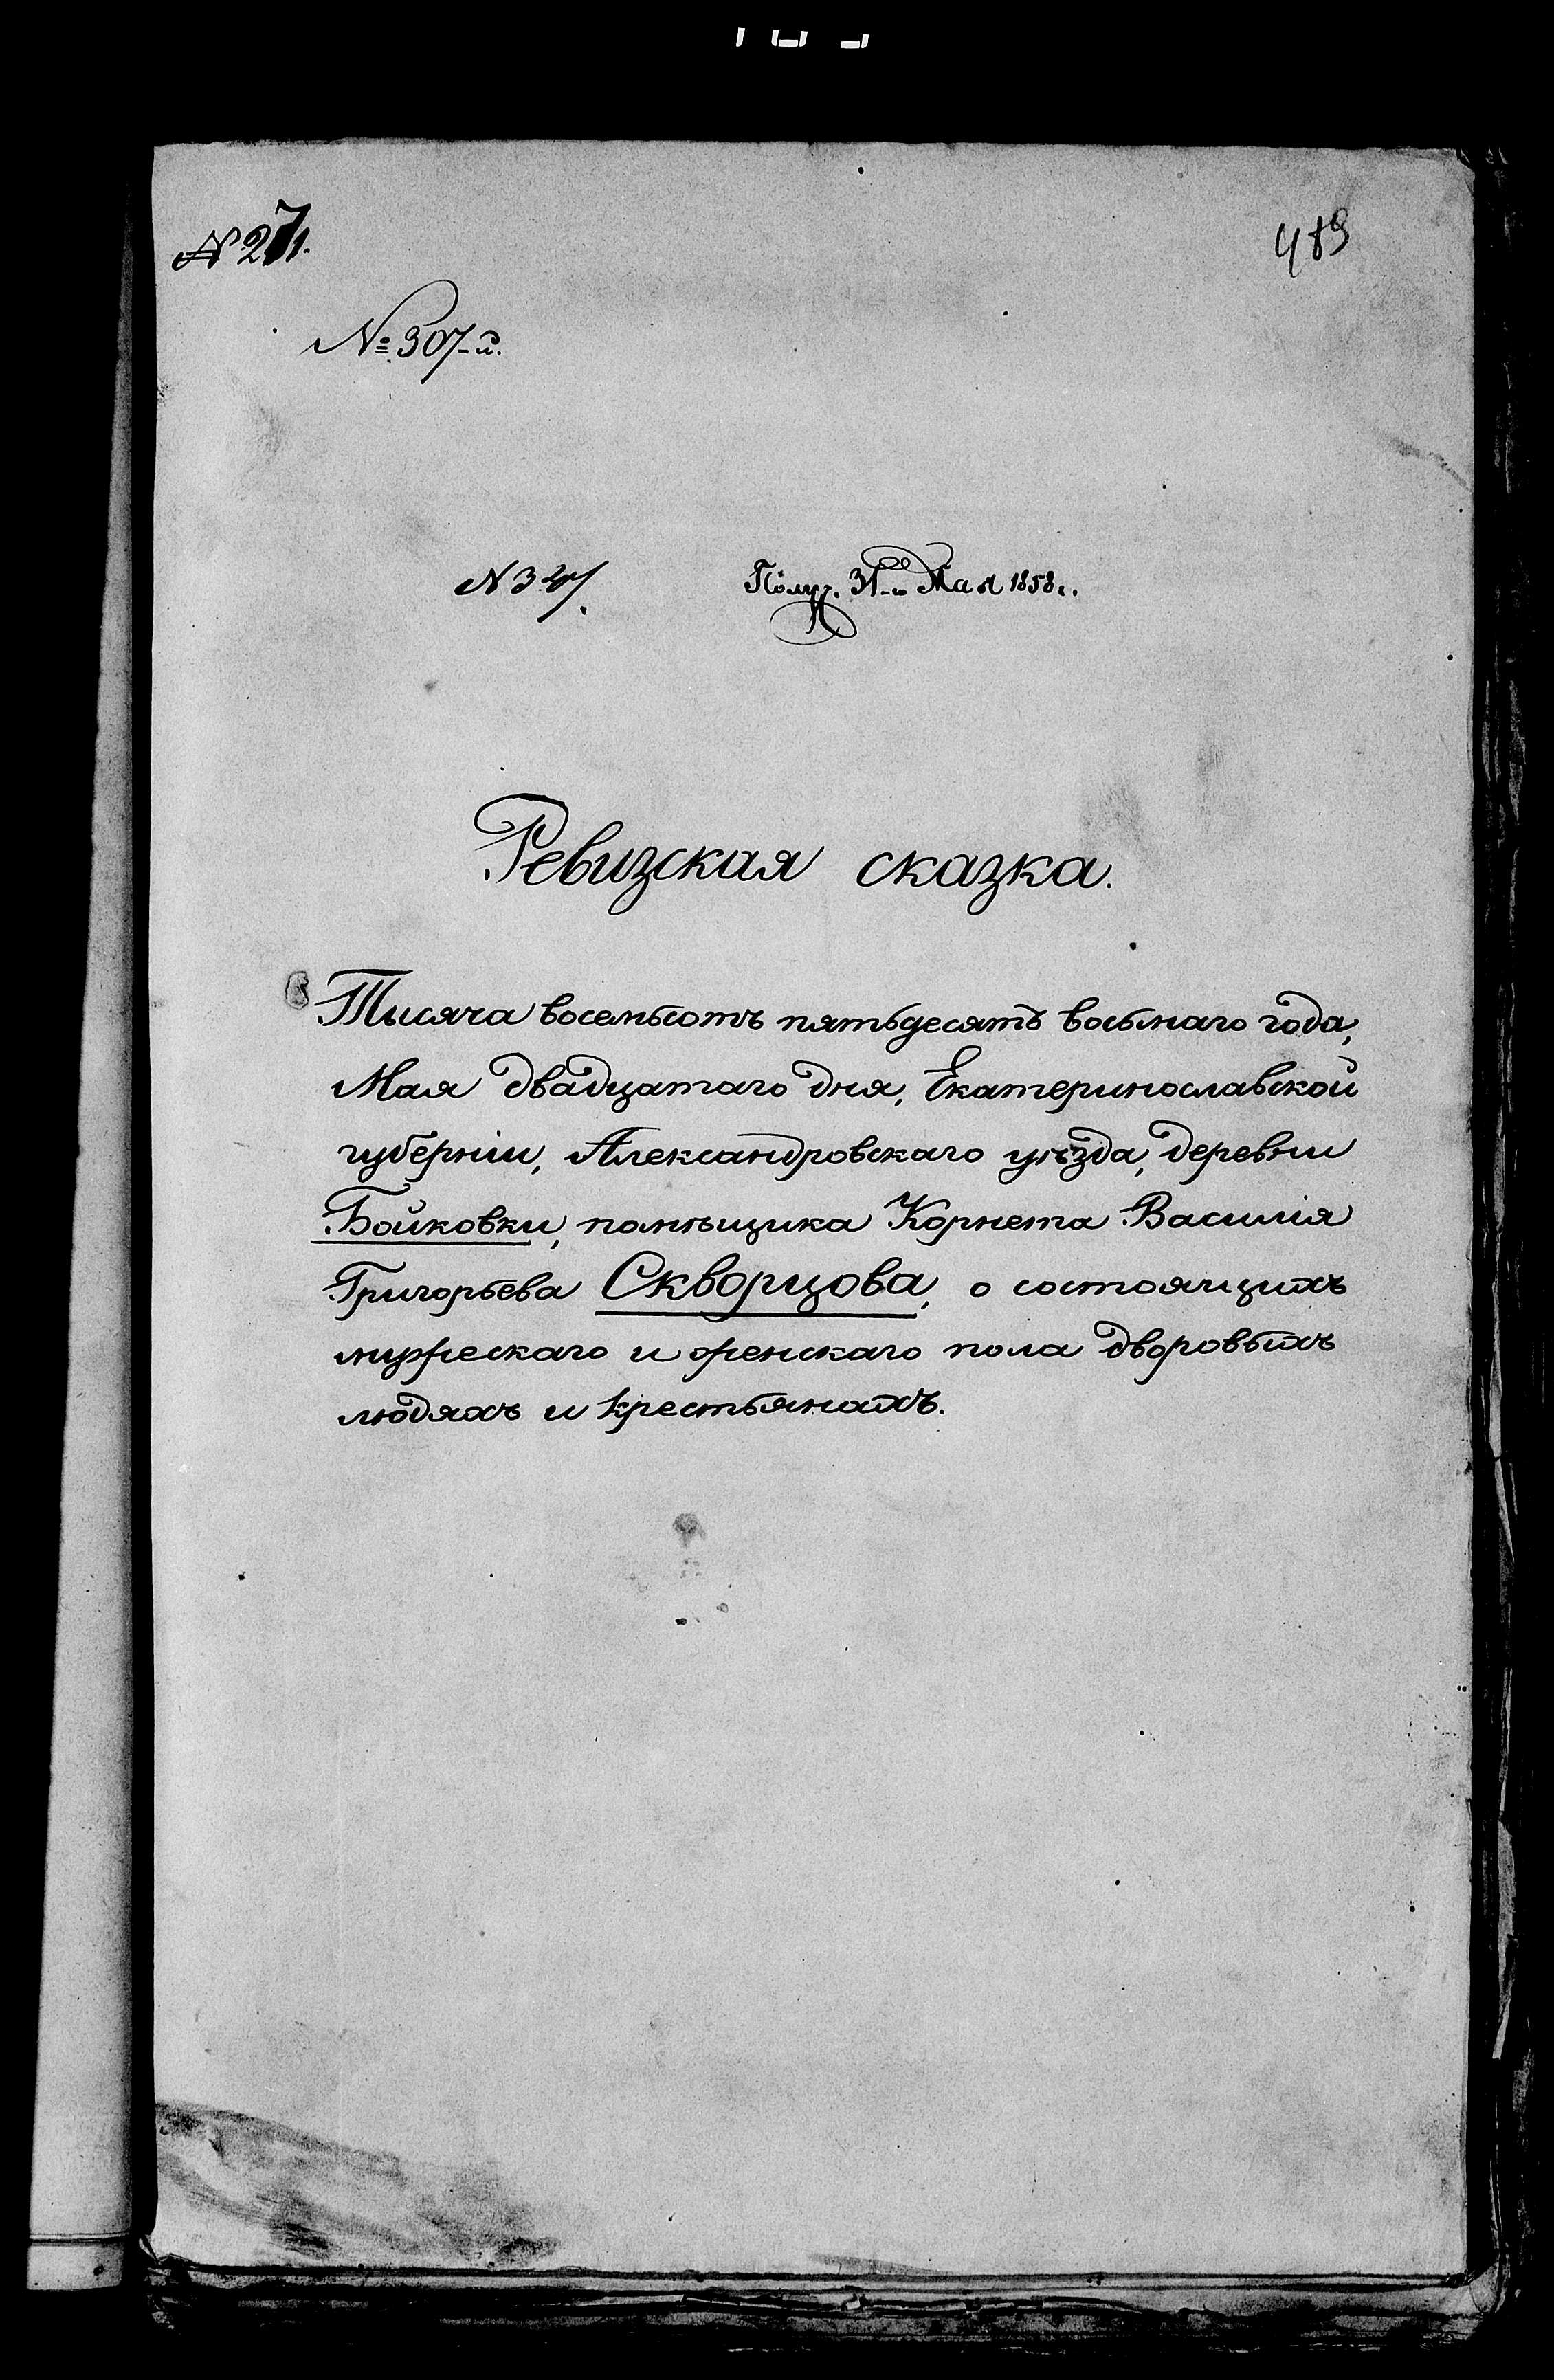 № 271.
489
№ 307-й.
№ 327.
Получ. 31-го Мая 1858 г.
Ревизская сказка.
Тысяча восемьсотъ пятьдесятъ восьмаго года,
Мая двадцатаго дня, Екатеринославской
губерніи, Александровскаго уѣзда, деревни
Бойковки, помѣщика Корнета Василія
Григорьева Скворцова, о состоящихъ
мужескаго и женскаго пола дворовыхъ
людяхъ и крестьянахъ.